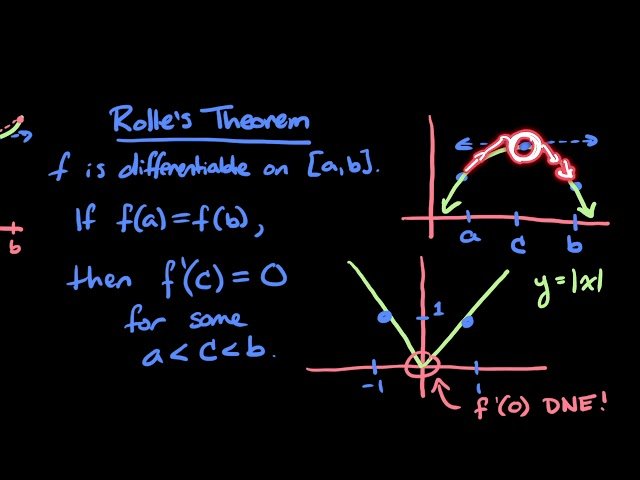 Rolle's Theorem
f is differentiable on [a,b].
If f(a)=f(b),
then f'(c)=0
for some
a<c<b.
b
a c b
y=|x|
1
-1 1
f'(0) DNE!